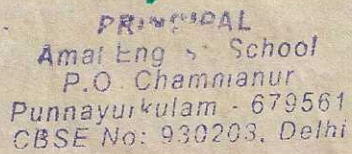 PRINCIPAL
Amal Eng School
P.O Chammanur
Punnayurkulam - 679561
CBSE No: 930203, Delhi